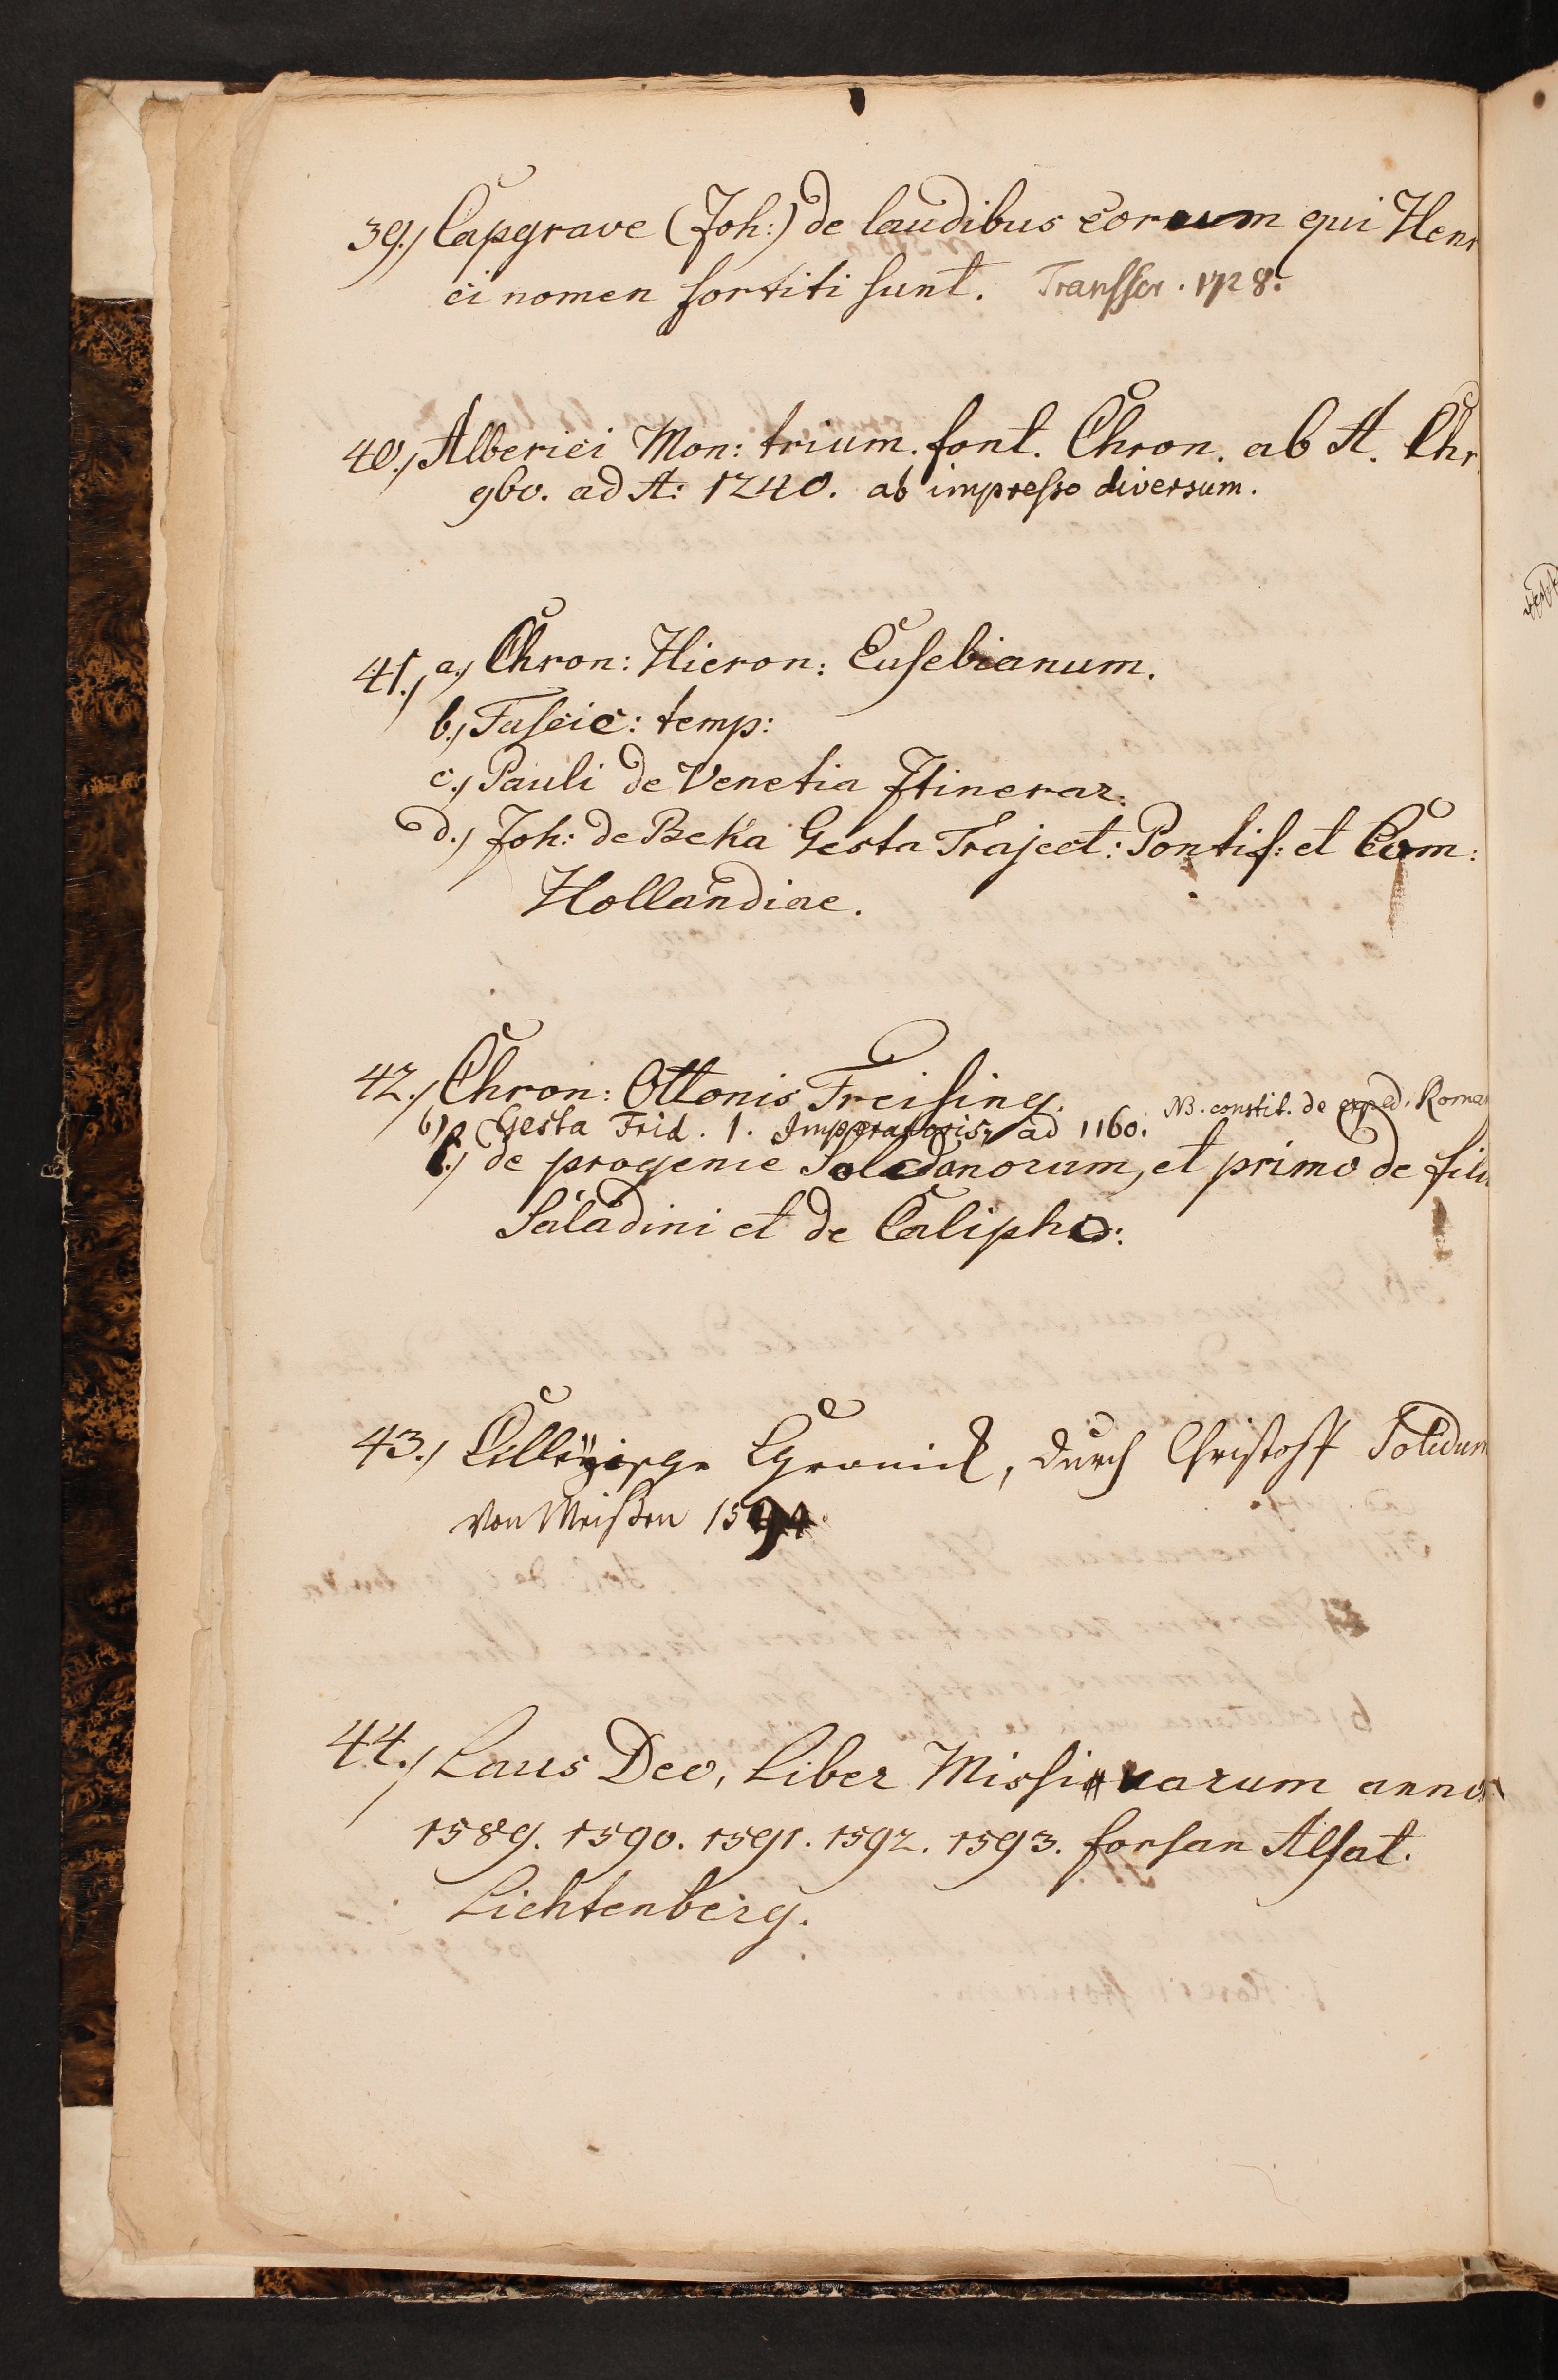 39.) Capgrave (Joh:) de laudibus eorum qui Hen
ci nomen sortiti sunt. Transscr. 1728.
40.) Alberici Mon: trium. font. Chron. ab A. Chr
960. ad A: 1240. ab impresso diversum.
41.) a.) Chron: Hieron: Eusebianum.
b.) Fascic: temp:
c.) Pauli de Venetia Itinerar.
d.) Joh: de Beka Gesta Traject: Pontif: et Com:
Hollandiae.
42.) Chron: Ottonis Freising.
b) Gesta Frid. 1. Imperatoris, ad 1160. NB. constit. de exped. Roma
c.) de progenie Soldanorum, et primo de fili
Saladini et de Calipho:
43.) Cilleyische Chronick, durch Christoff Solidum
von Meißen 1594
44.) Laus Deo, Liber Missivarum anno
1589. 1590. 1591. 1592. 1593. forsan Alsat.
Lichtenberg.